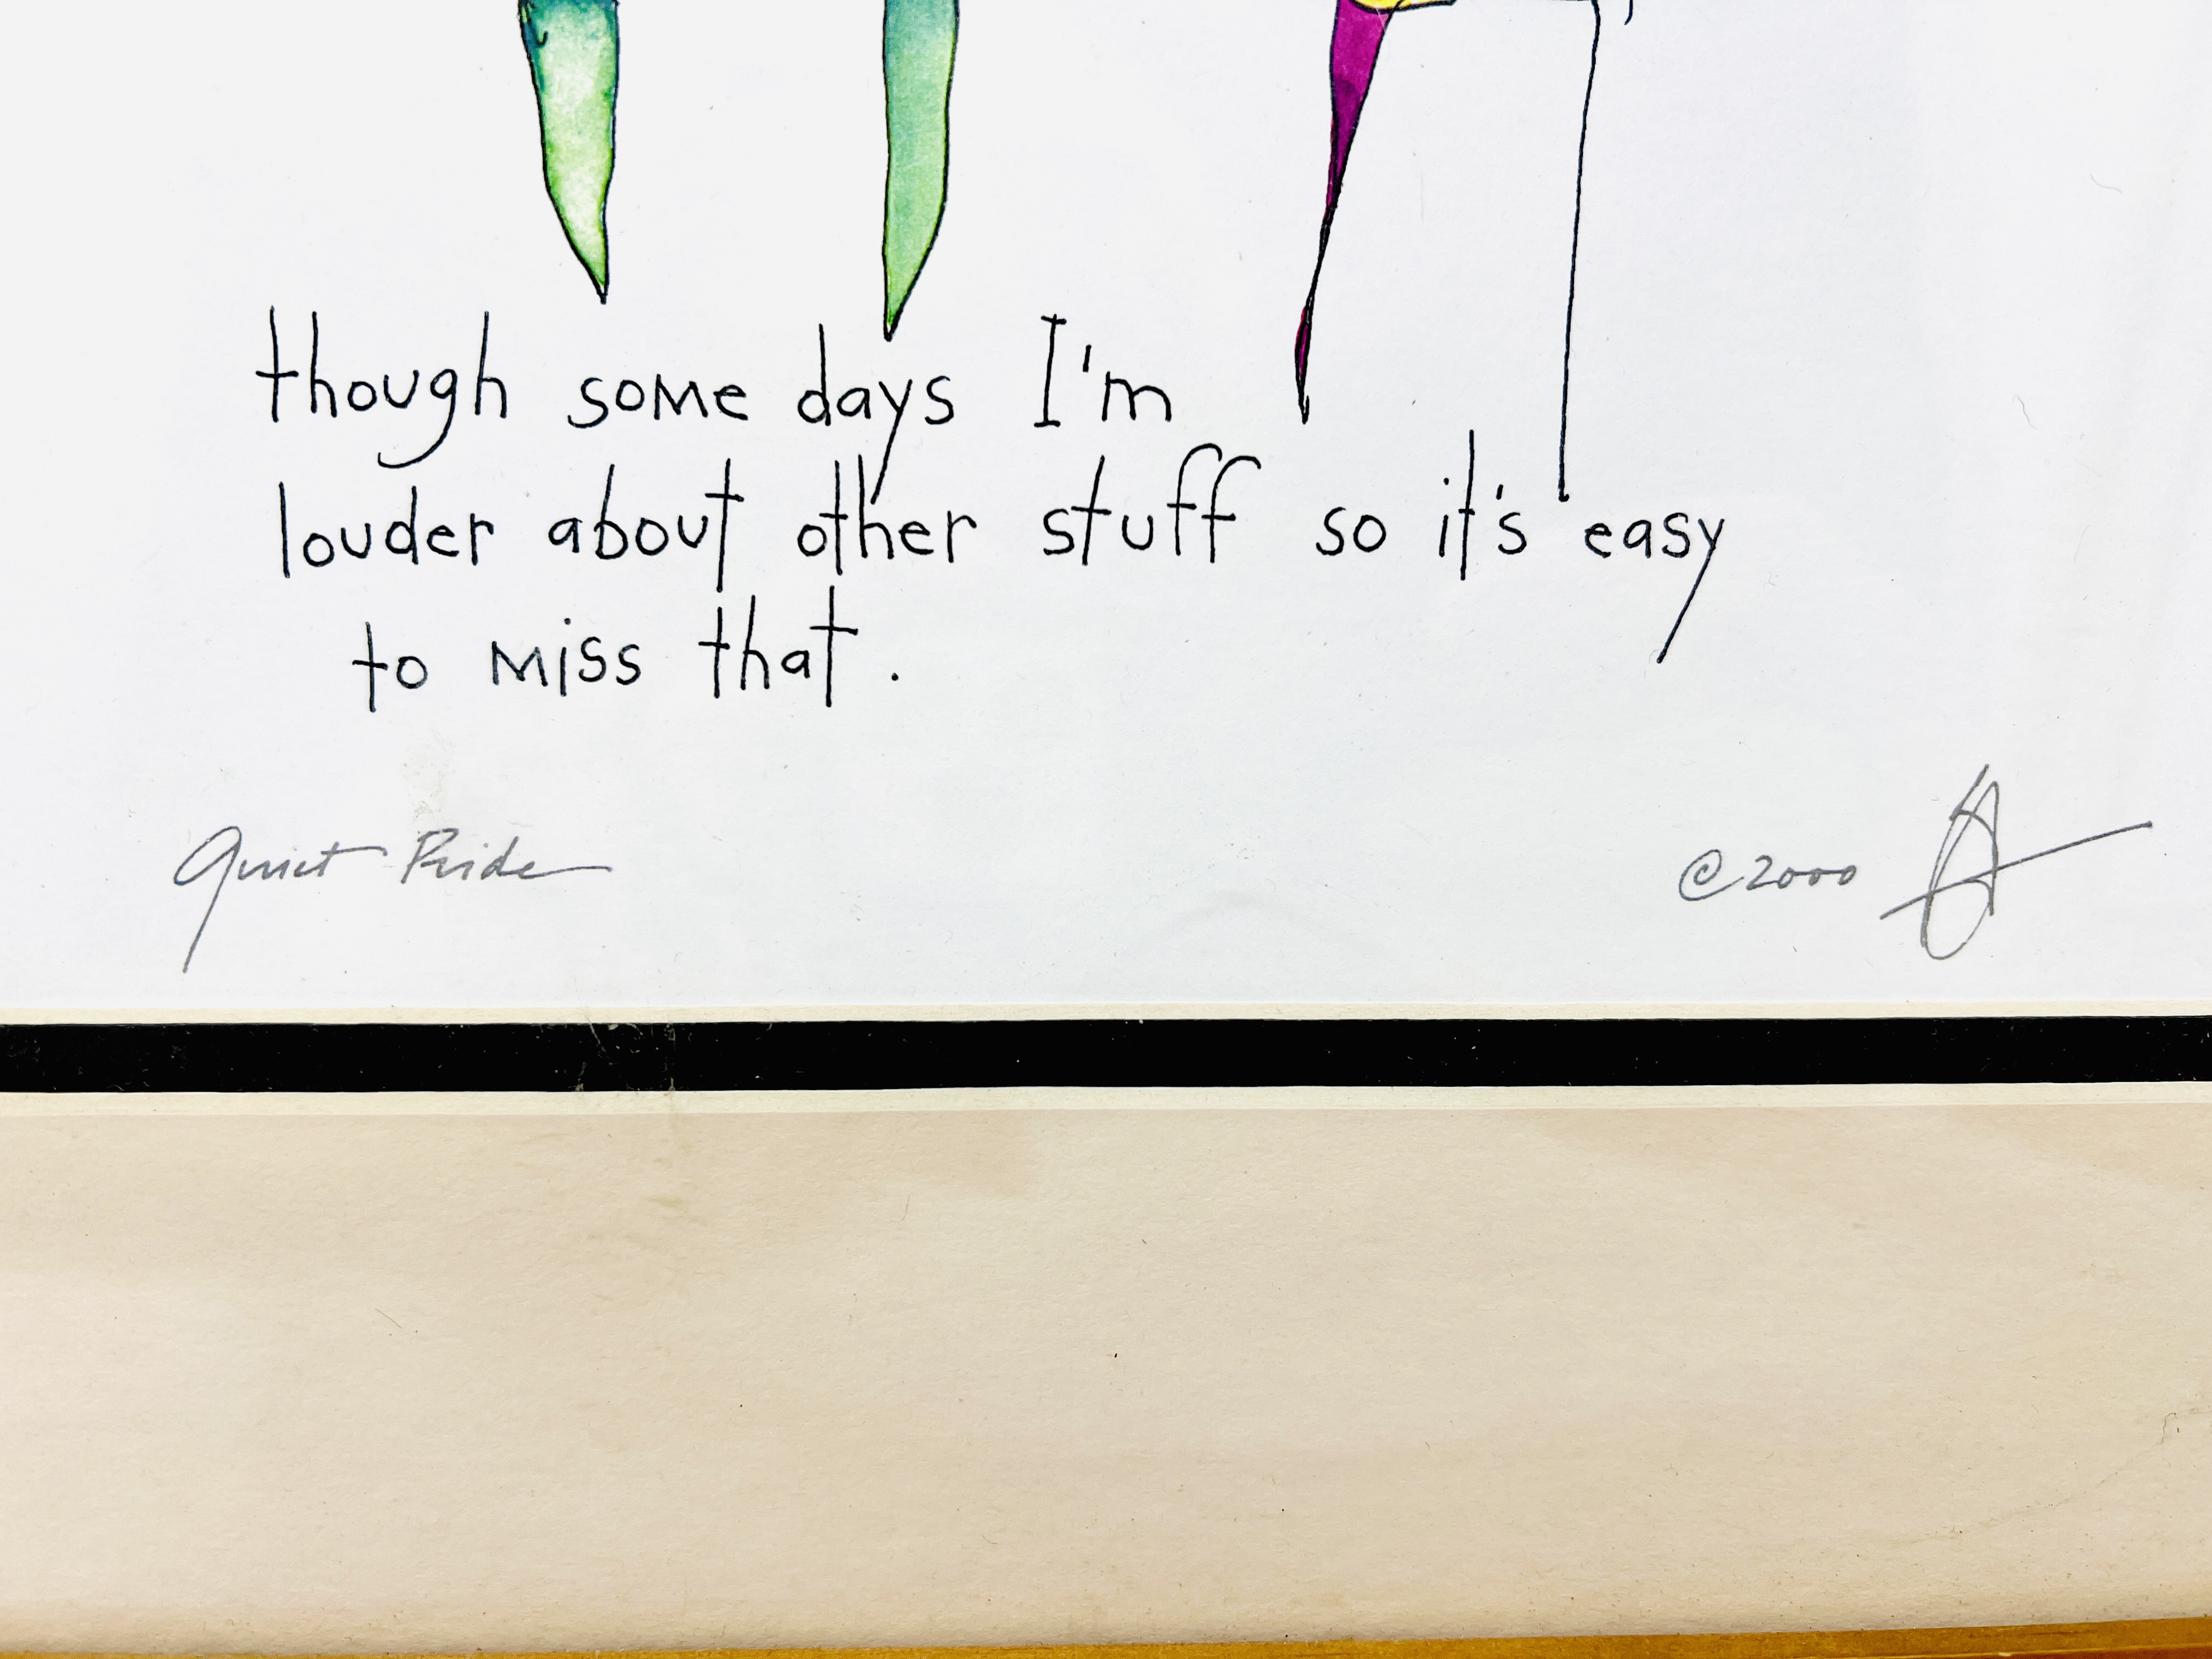 though some days I'm
louder about other stuff so it's easy
to miss that.
Quiet Pride
©2000